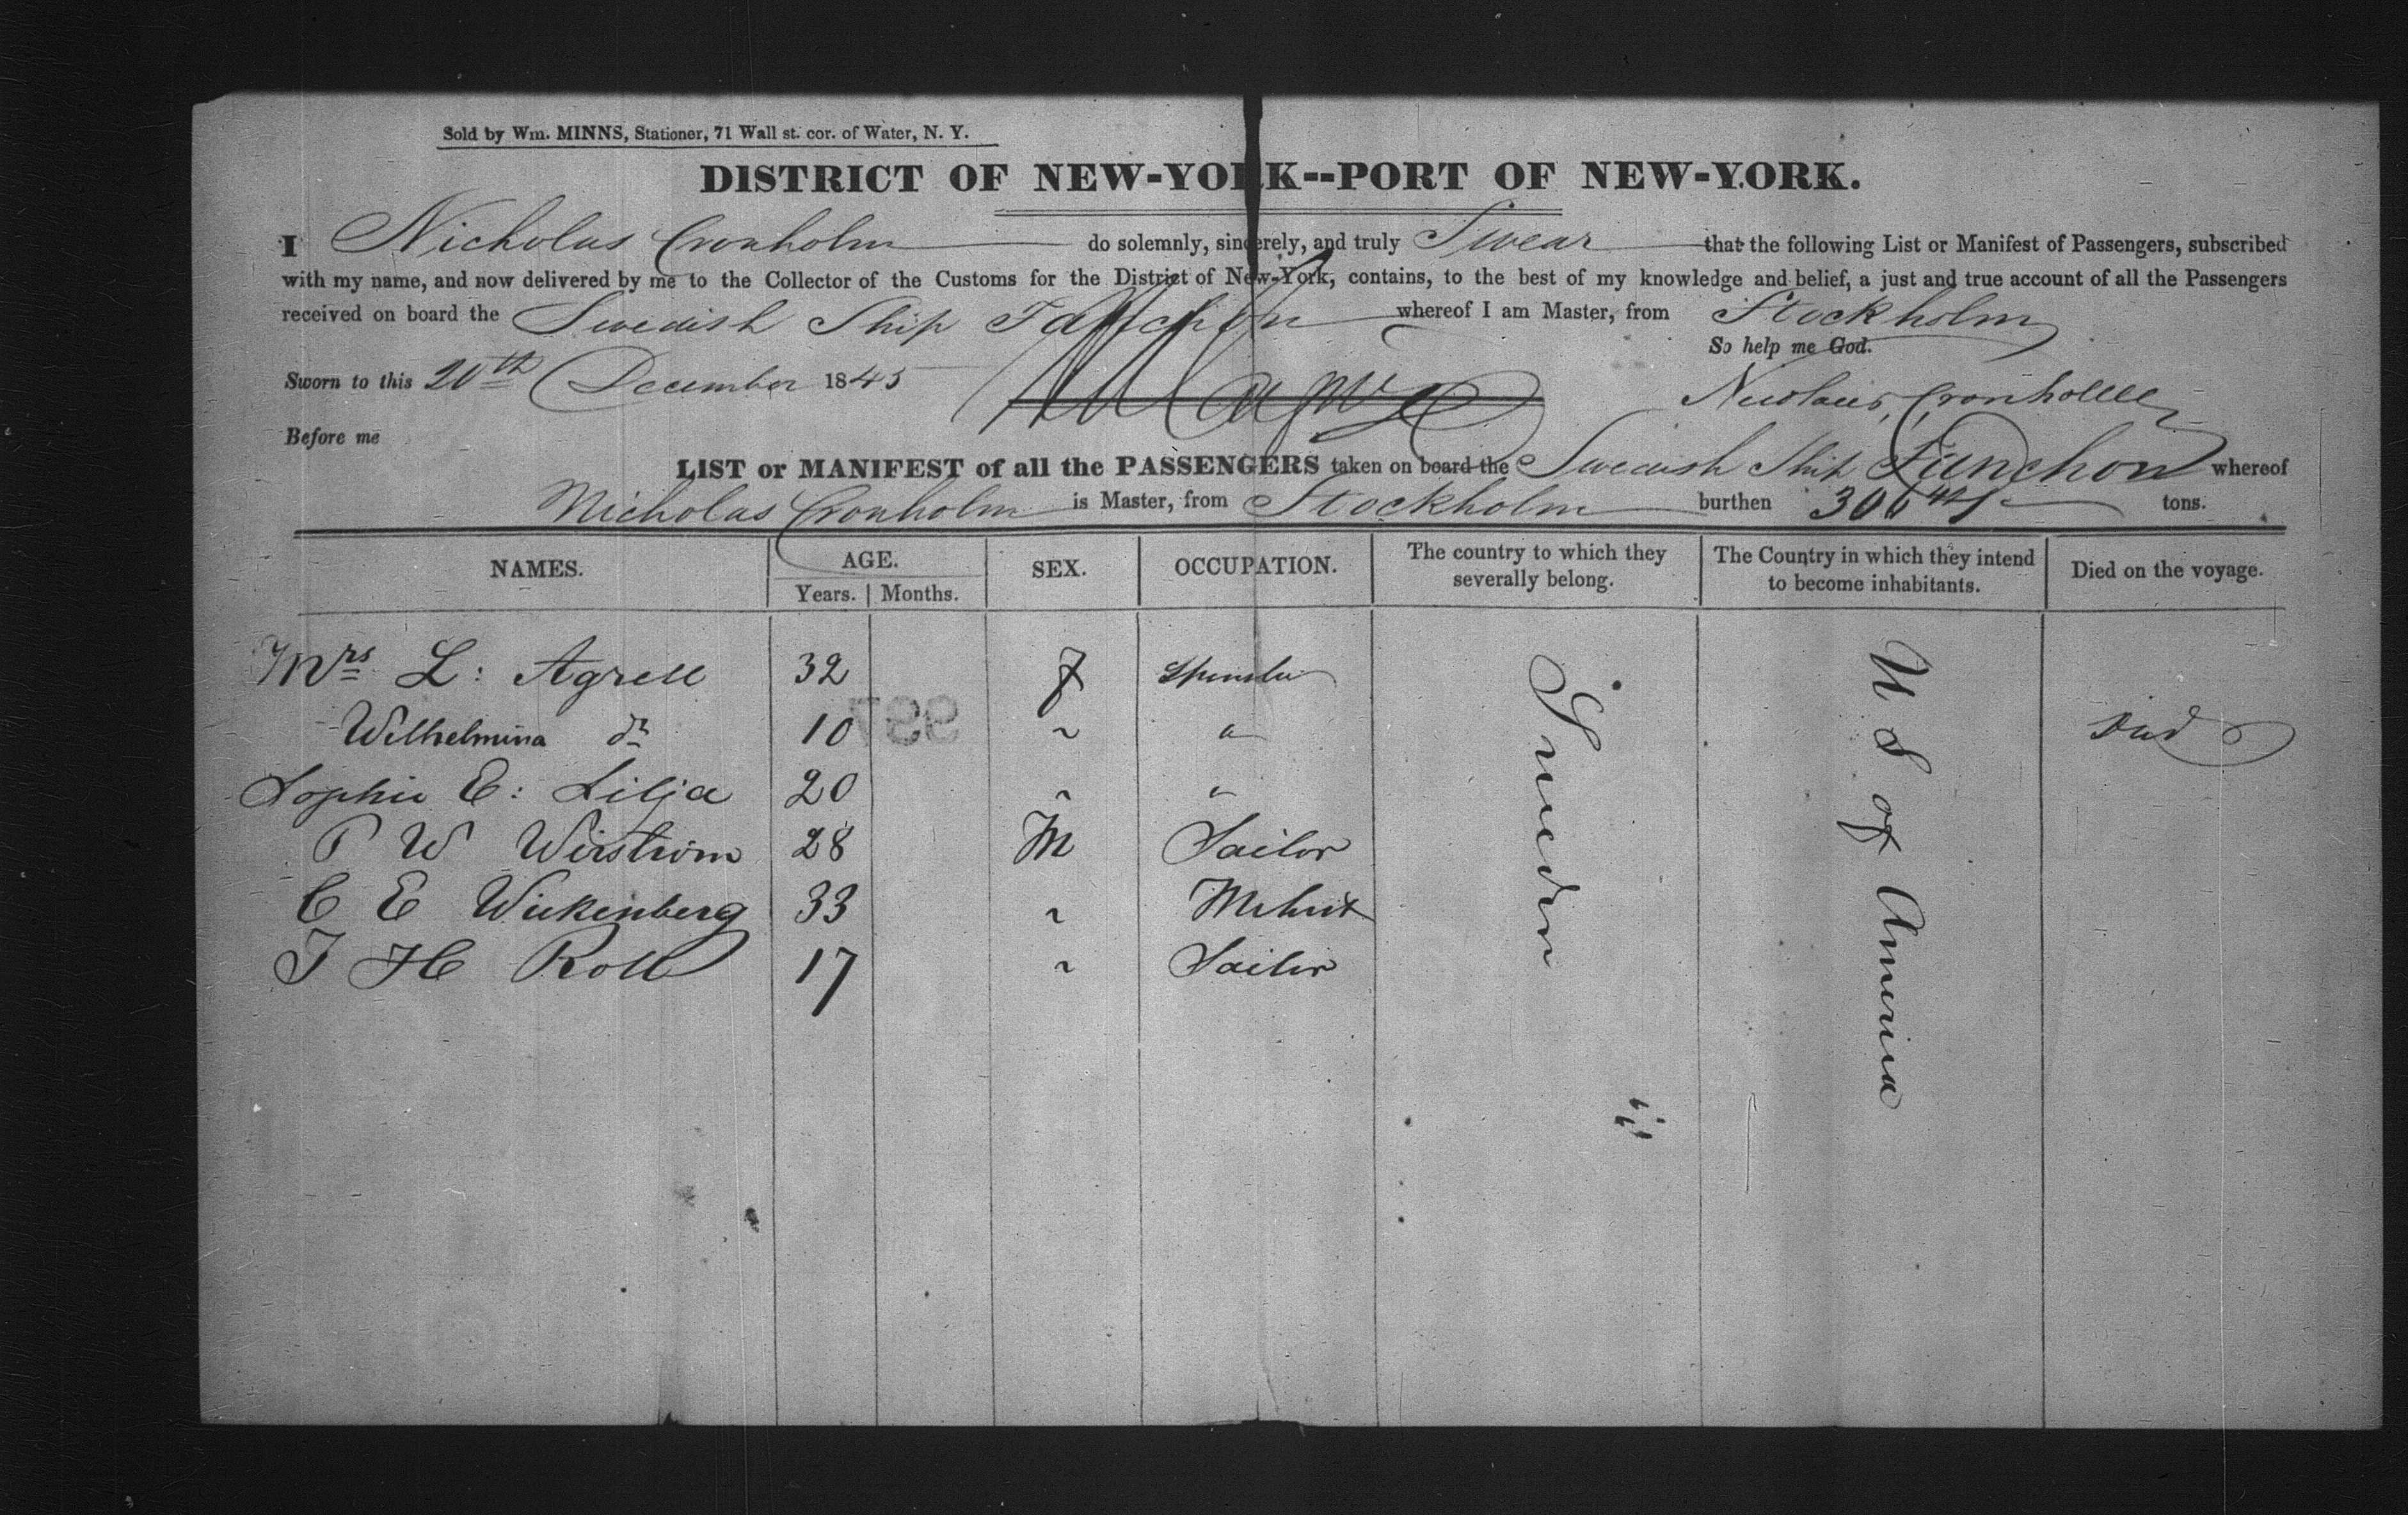 Sold by Wm. MINNS, Stationer, 71 Wall st. cor. of Water, N. Y.
DISTRICT OF NEW-YORK--PORT OF NEW-YORK.
I Nicholas Cronholm do solemnly, sincerely, and truly Swear that the following List or Manifest of Passengers, subscribed
with my name, and now delivered by me to the Collector of the Customs for the District of New-York, contains, to the best of my knowledge and belief, a just and true account of all the Passengers
received on board the Swedish Ship whereof I am Master, from Stockholm
So help me God.
Sworn to this 20th December 1845
Nicolaus Cronholm
Before me
LIST or MANIFEST of all the PASSENGERS taken on board the Swedish Ship Fanchon whereof
Nicholas Cronholm is Master, from Stockholm burthen tons.
NAMES. AGE. SEX. OCCUPATION. The country to which they severally belong. The Country in which they intend to become inhabitants. Died on the voyage.
Years. Months.
Mrs L: Agrell 32 f Spinster
Wilhelmina do 10 " " Died
Sophie E: Lilja 20 " "
P W Wiström 28 M Sailor
C E Wickenberg 33 "
J H Roll 17 " Sailor
Sweden
U S of America
997